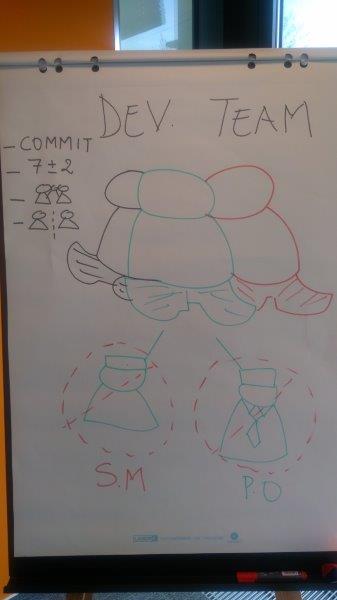 DEV. TEAM
- COMMIT
- 7 ± 2
-
-
S.M
P.O